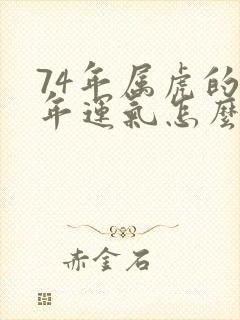 74年属虎的
年運氣怎麽
赤金石